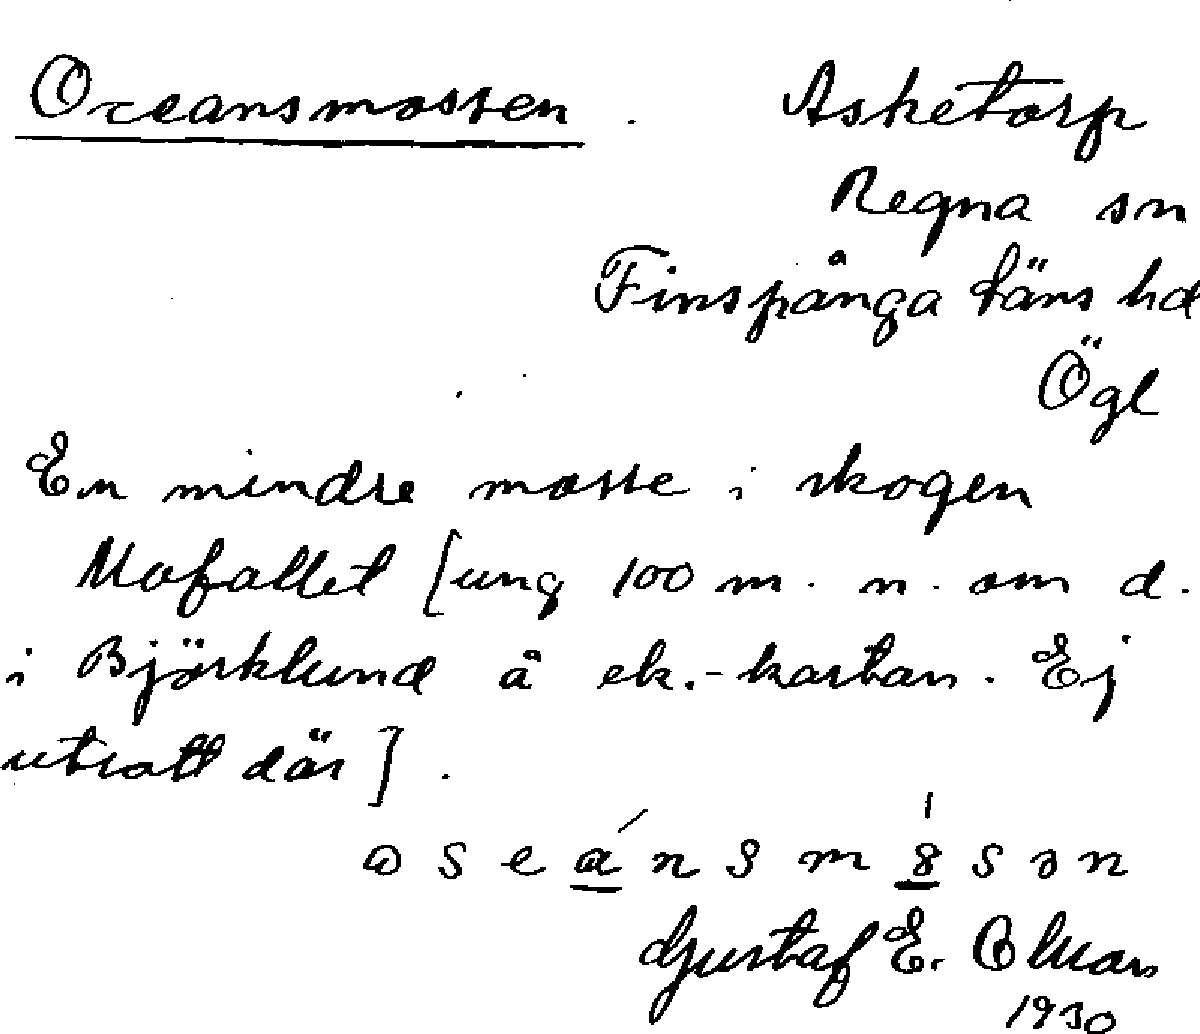 Oceansmossen. Asketorp
Regna sn
Finspånga läns hd
Ögl
En mindre mosse i skogen
Mofallet [ung 100 m. n. om d.
i Björklund å ek.-kartan. Ej
utsatt där].
Gustaf E.
1930